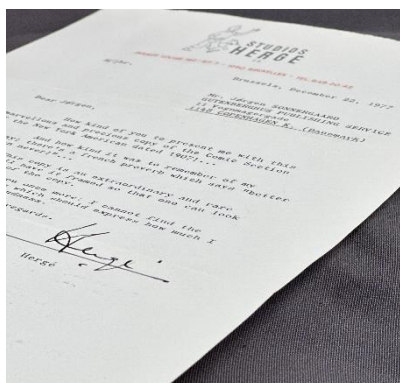 STUDIOS
HERGÉ
Brussels, December 22, 1977
Mr. Jørgen SONNERGAARD
GUTENBERGHUS PUBLISHING SERVICE
11 Vognmagergade
1148 COPENHAGEN K. (DANEMARK)
Dear Jørgen,
How kind of you to present me with this
marvellous and precious copy of the Comic Section
the New York American dated 1907!...
And how kind it was to remember of my
there's a french proverb which says "better
than never"...
This copy is an extraordinary and rare
it framed so that one can look
of the copy.
once more; I cannot find the
which should express how much I
regards.
Hergé
Hergé